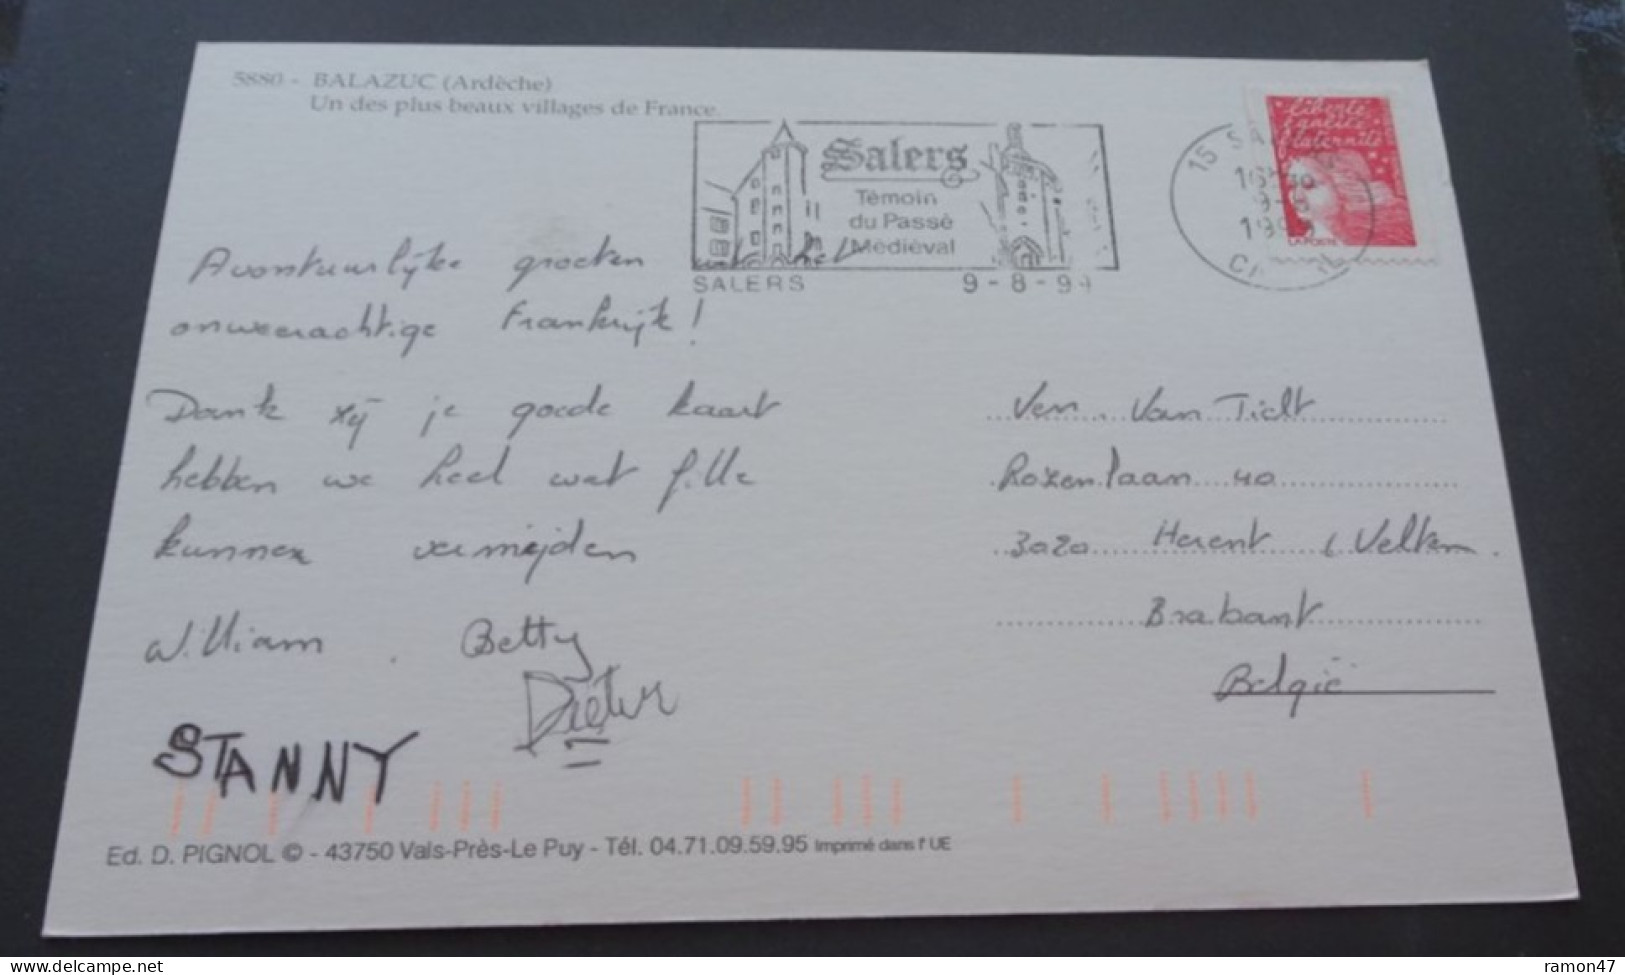 5880 - BALAZUC (Ardèche)
Un des plus beaux villages de France.
Salers
Témoin
du Passé
Médiéval
SALERS 9-8-99
15 SA
16H30
9-8
1999
CANTAL
Liberté
égalité
fraternité
LA POSTE
Avontuurlijke groeten uit het
onweerachtige Frankrijk!
Dank zij je goede kaart
hebben we heel wat file
kunnen vermijden
William . Betty
Dieter
STANNY
Van Tielt
Rozenlaan 40
3020 Herent (Veltem
Brabant
België
Ed. D. PIGNOL © - 43750 Vals-Près-Le Puy - Tél. 04.71.09.59.95 Imprimé dans l'UE
ramon47